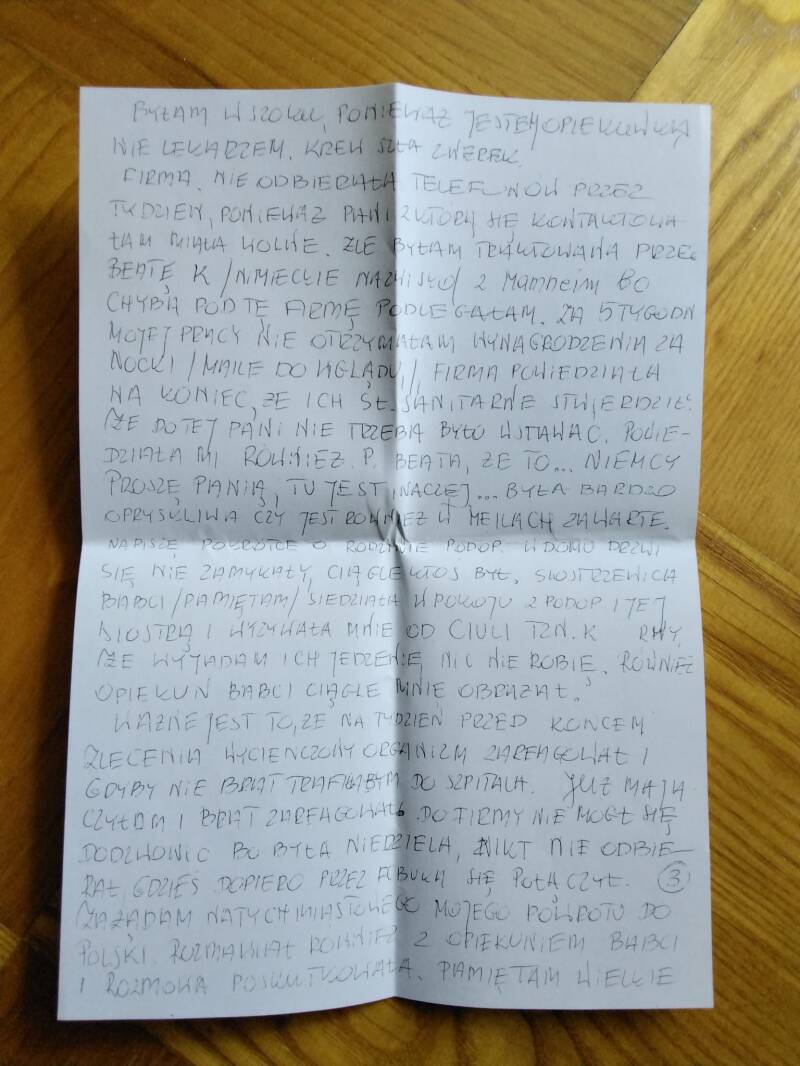 BYŁAM W SZOKU, PONIEWAŻ JESTEM OPIEKUNKĄ
NIE LEKARZEM. KREW SZŁA ZNEREK.
FIRMA. NIE ODBIERAŁA TELEFONÓW PRZEZ
TYDZIEŃ, PONIEWAŻ PANI Z KTÓRĄ SIĘ KONTAKTOWA
ŁAM MIAŁA WOLNE. ŹLE BYŁAM TRAKTOWANA PRZEZ
BEATĘ K /NIMIECKIE NAZWISKO/ Z Mannheim BO
CHYBA POD TĘ FIRMĘ PODLEGAŁAM. ZA 5 TYGODN
MOJEJ PRACY NIE OTRZYMAŁAM WYNAGRODZENIA ZA
NOCKI /MAILE DO WGLĄDU//, FIRMA POWIEDZIAŁA
NA KONIEC, ŻE ICH SŁ. SANITARNE STWIERDZIŁ
ŻE DO TEJ PANI NIE TRZEBA BYŁO WSTAWAĆ. POWIE-
DZIAŁA MI RÓWNIEŻ P. BEATA, ŻE TO... NIEMCY
PROSZĘ PANIĄ, TU JEST INACZEJ... BYŁA BARDZO
OPRYSKLIWA CZY JEST RÓWNIEŻ W MEILACH ZAWARTE.
NAPISZĘ POKRÓTCE O RODZINIE PODOP. W DOMU DRZWI
SIĘ NIE ZAMYKAŁY, CIĄGLE KTOŚ BYŁ, SIOSTRZENICA
BABCI /PAMIĘTAM/ SIEDZIAŁA W POKOJU Z PODOP I JEJ
SIOSTRĄ I WYZYWAŁA MNIE OD CIULI TZN. K RWY,
ŻE WYJADAM ICH JEDZENIE, NIC NIE ROBIĘ. RÓWNIEŻ
OPIEKUN BABCI CIĄGLE MNIE OBRAŻAŁ.
WAŻNE JEST TO, ŻE NA TYDZIEŃ PRZED KOŃCEM
ZLECENIA WYCIEŃCZONY ORGANIZM ZAREAGOWAŁ I
GDYBY NIE BRAT TRAFIŁABYM DO SZPITALA. JUŻ MAJA
CZYŁAM I BRAT ZAREAGOWAŁ. DO FIRMY NIE MÓGŁ SIĘ
DODZWONIĆ BO BYŁA NIEDZIELA, NIKT NIE ODBIE-
RAŁ, GDZIEŚ DOPIERO PRZEZ FCBUKA SIĘ POŁĄCZYŁ. 3
ZAŻĄDAM NATYCHMIASTOWEGO MOJEGO POWROTU DO
POLSKI. ROZMAWIAŁ RÓWNIEŻ Z OPIEKUNEM BABCI
I ROZMOWA POSKUTKOWAŁA. PAMIĘTAM WIELKIE